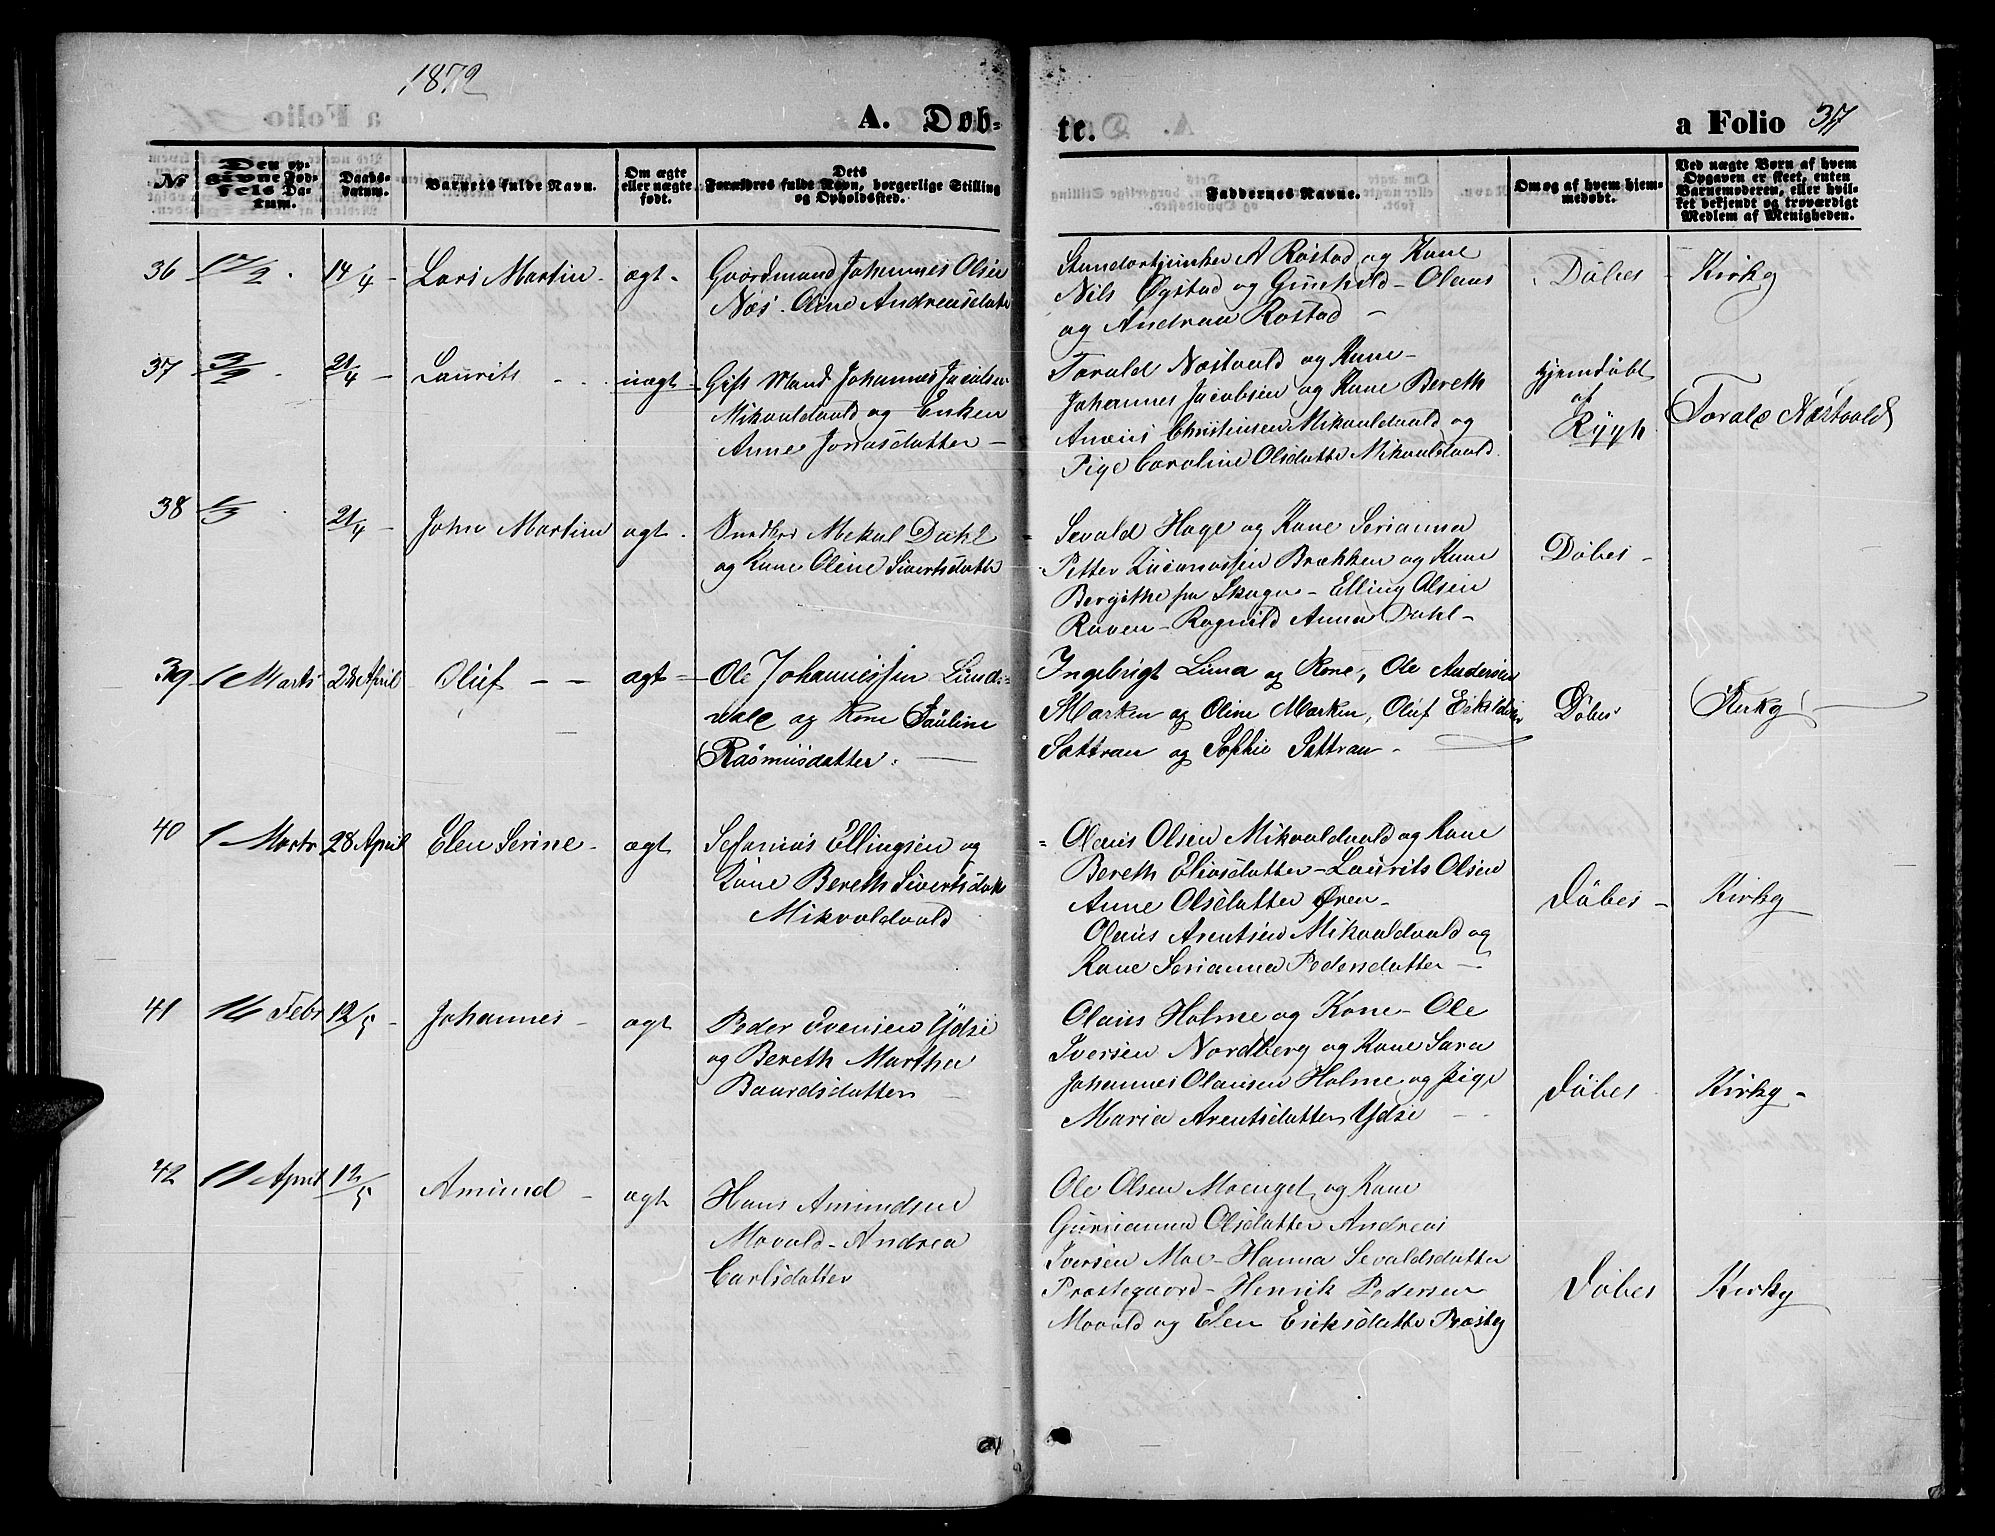 1872
A. Døb-
te.
a Folio 37
No
Den op-
givne Fød-
sels Da-
tum.
Daabs-
datum.
Barnets fulde Navn.
Om ægte
eller uægte
født.
Dets
Forældres fulde Navn, borgerlige Stilling
og Opholdssted.
Faddernes Navne.
Om og af hvem hjem-
medøbt.
Ved uægte Børn af hvem
Opgaven er skeet, enten
Barnemoderen, eller hvil-
ket bekjendt og troværdigt
Medlem af Menigheden.
36 17/2 14/4 - Lars Martin - ægt -
Gaardmand Johannes Olsen
Næs. Oline Andreasdatter
A Rostad og Kone
Nils Øgstad og Gunhild - Olaus
og Andrea Rostad -
Döbes - Kirkg
37 3/2 21/4 - Laurits - uægt -
Gift Mand Johannes Jacobsen
Mikvoldvald og Enken
Anne Jonasdatter -
Torald Næstvold og Kone -
Johannes Jacobsen og Kone Bereth
Anæus Christensen Mikvoldvald og
Pige Caroline Olsdatter Mikvoldvald.
Hjemdöbt
af
Rygh.
Torald Næstvold
38 1/3 21/4 - John Martin ægt.
Mekal Dahl
og Kone Oline Sivertsdatter
Sevald Hage og Kone Serianna
Petter Zacariassen Brækken og Kone
Bergithe fra Skogn - Elling Olsen
Raven - Ragnild Anna Dahl -
Döbes -
39 1 Marts 28 April Oluf - - ægt -
Ole Johannessen Lund-
vald og Kone Pauline
Rasmusdatter. -
Ingebrigt Lund og Kone, Ole Andersen
Marken og Oline Marken, Oluf Eskildsen
Sættran og Sophie Sættran -
Döbes Kirkg
40 1 Marts 28 April Elen Serine - ægt
Sefanias Ellingsen og
Kone Bereth Sivertsdatter
Mikvoldvald
Olaus Olsen Mikvoldvald og Kone
Bereth Eliasdatter - Laurits Olsen
Anne Olsdatter Øren -
Olaus Arentsen Mikvoldvald og
Kone Serianna Pedersdatter -
Döbes - Kirkg
41 14 Febr 12/5 - Johannes - ægt
Peder Svensen Ydse
og Bereth Martha
Baardsdatter
Olaus Holme og Kone - Ole
Iversen Nordberg og Kone Sara
Johannes Olausen Holme og Pige
Maria Arentsdatter Ydse -
Döbes Kirkg -
42 11 April 12/5 Amund - ægt
Hans Amundsen
Movald - Andrea
Carlsdatter
Ole Olsen Moenget og Kone
Gurianna Olsdatter Andreas
Iversen Moe - Hanna Sevaldsdatter
Præstegaard - Henrik Pedersen
Movald og Elen Eriksdatter Præsteg
Döbes Kirkg